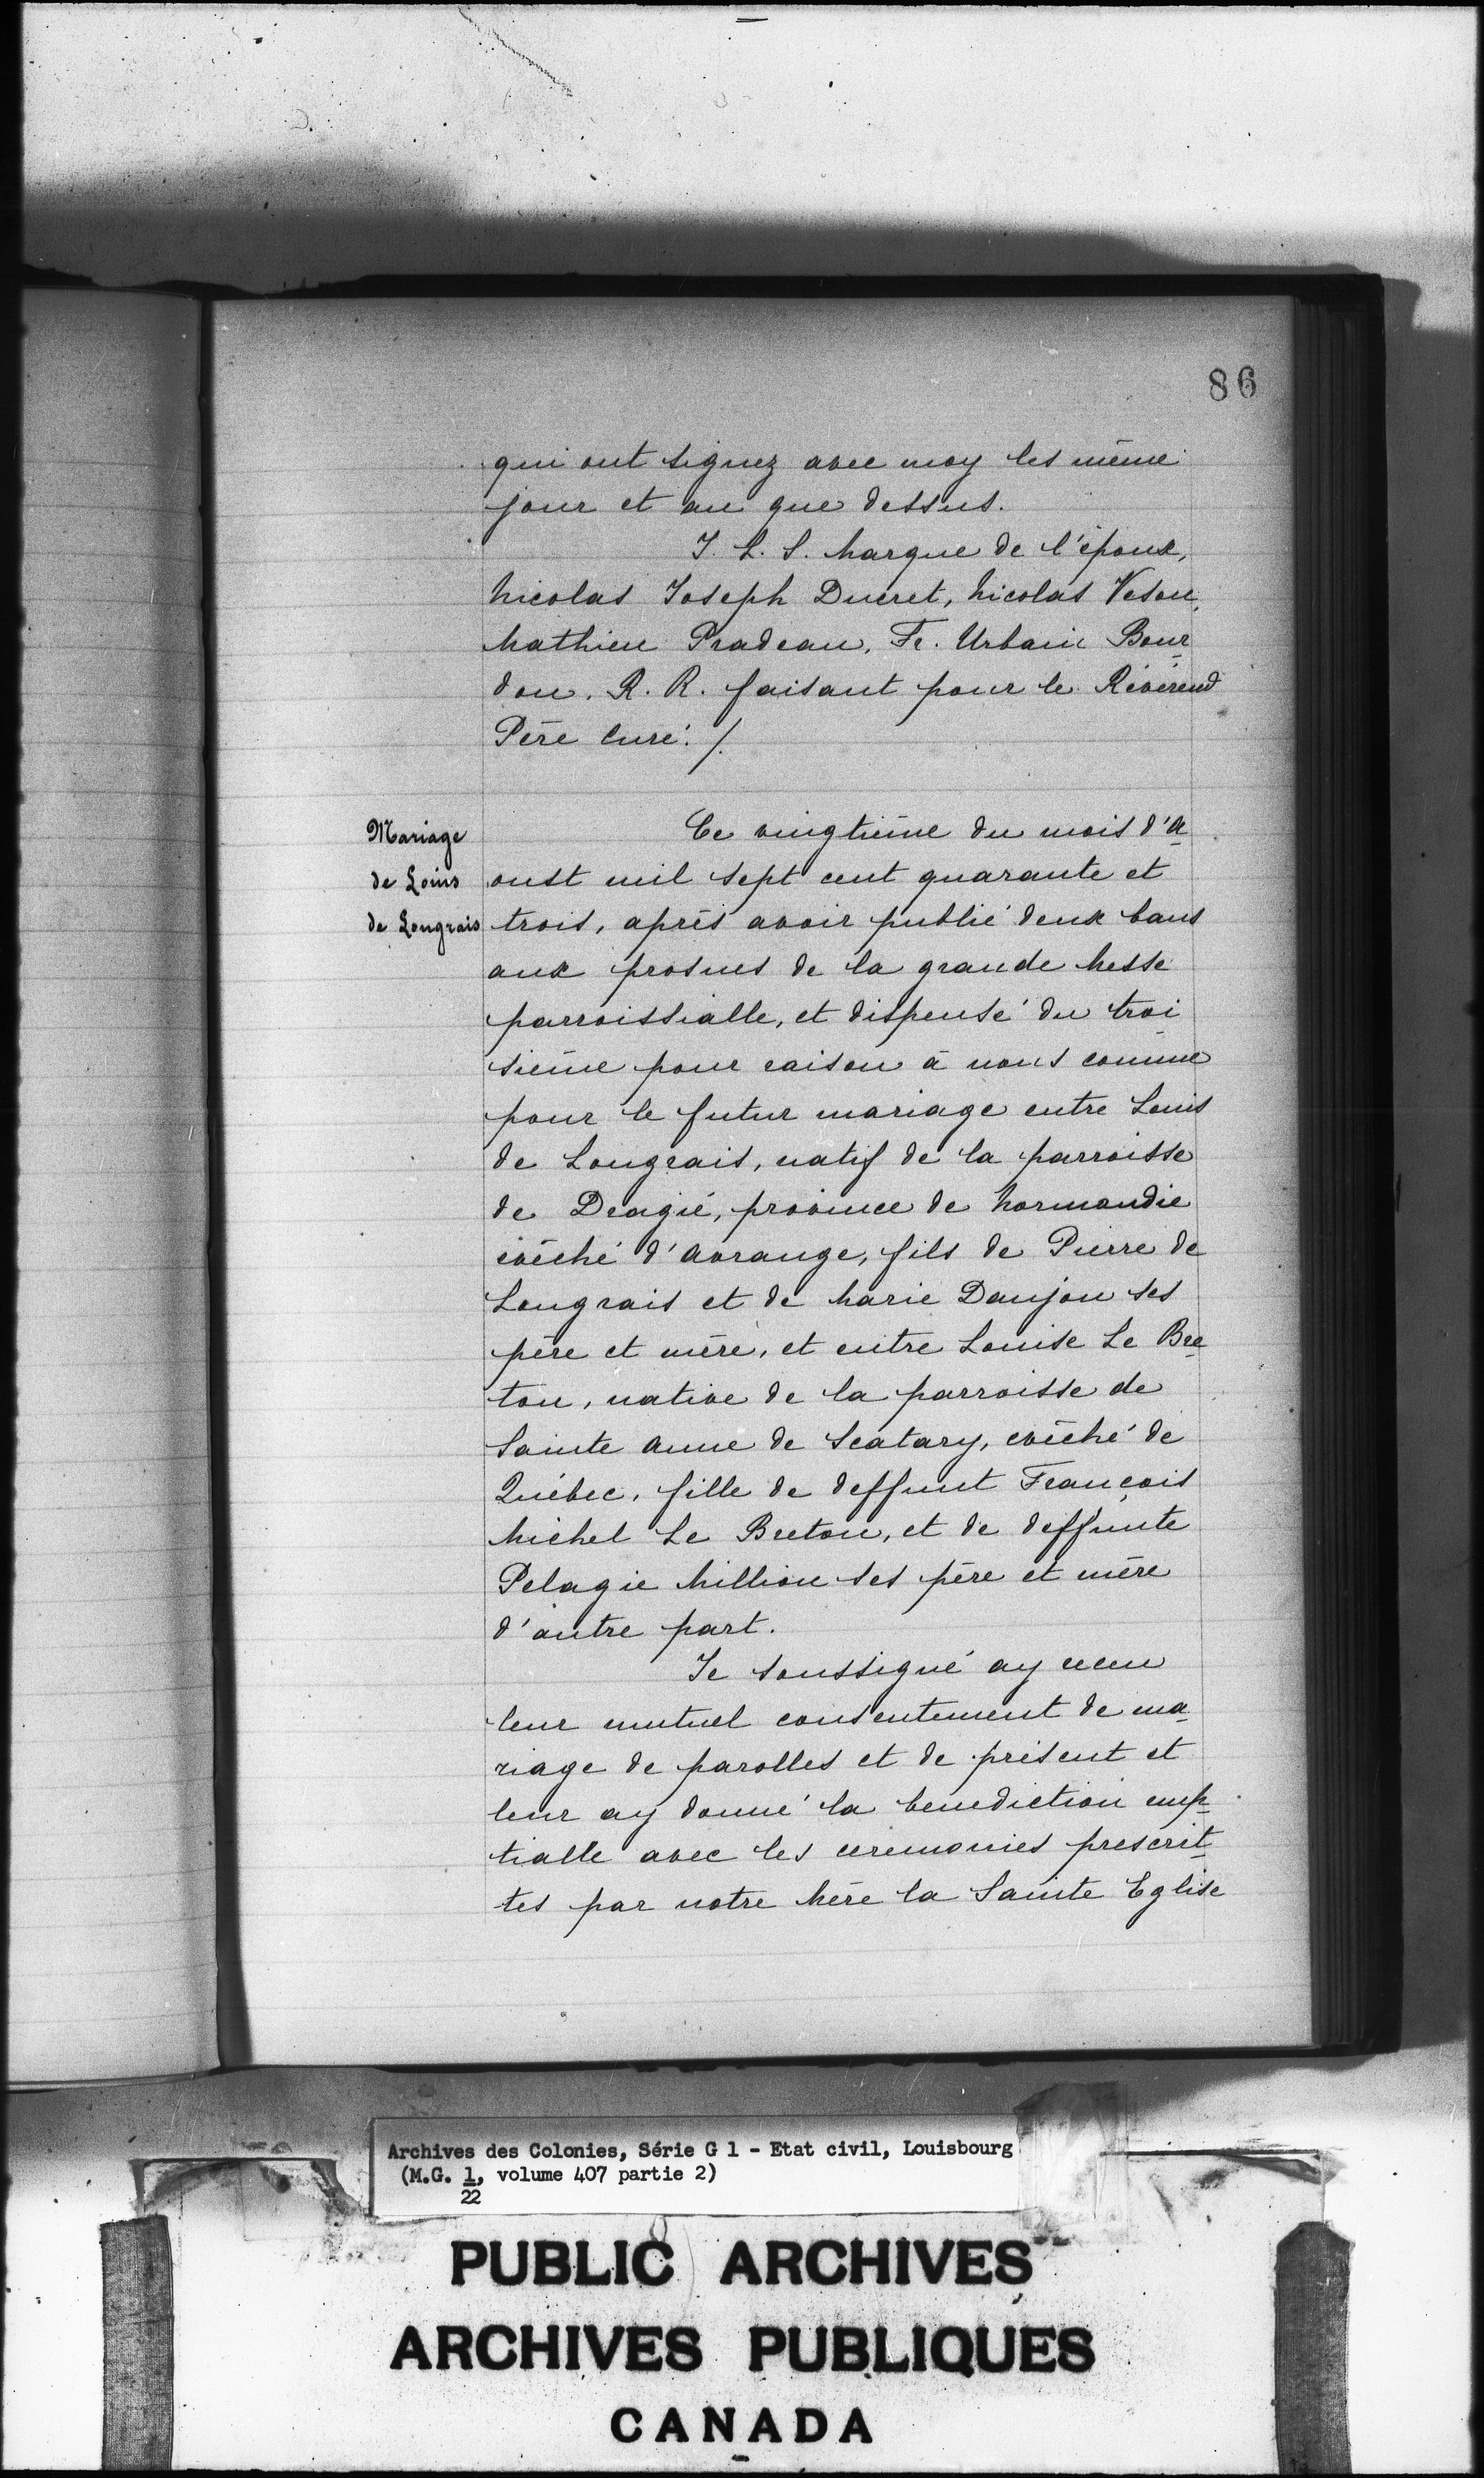 86
qui ont signez avec moy les même
jour et an que dessus.
J. L. S. Marque de l'époux,
Nicolas Joseph Ducret, Nicolas Veson,
Mathieu Pradeau, Fr. Urbain Bour-
don. R. R. faisant pour le Révérend
Père Curé. /.
Mariage
de Louis
de Longrais
Ce vingtième du mois d'A-
oust mil sept cent quarante et
trois, après avoir publié deux bans
aux prosnes de la grande Messe
parroissialle, et dispensé du troi-
sième pour raison à nous connue
pour le futur mariage entre Louis
de Longrais, natif de la parroisse
de Dragié, province de Normandie
évêché d'Avrange, fils de Pierre de
Longrais et de Marie Danjou ses
père et mère, et entre Louise Le Bre-
ton, native de la parroisse de
Sainte Anne de Scatary, évêché de
Québec, fille de deffunt François
Michel Le Breton, et de deffunte
Pelagie Million ses père et mère
d'autre part.
Je soussigné ay receu
leur mutuel consentement de ma-
riage de parolles et de présent et
leur ay donné la benediction nup-
tialle avec les ceremonies prescrit-
tes par notre Mère la Sainte Eglise
Archives des Colonies, Série G 1 - Etat civil, Louisbourg
(M.G. 1, volume 407 partie 2)
22
PUBLIC ARCHIVES
ARCHIVES PUBLIQUES
CANADA